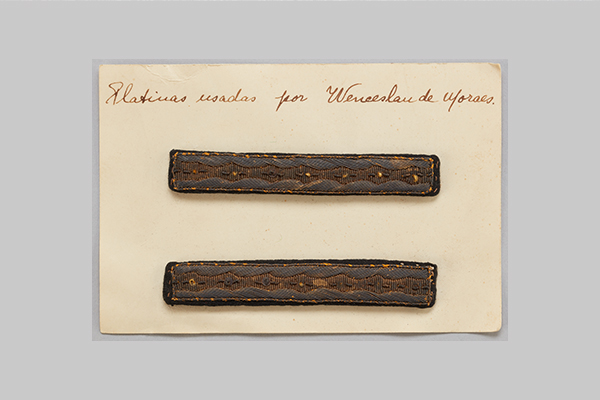 Platinas usadas por Wenceslau de Moraes.